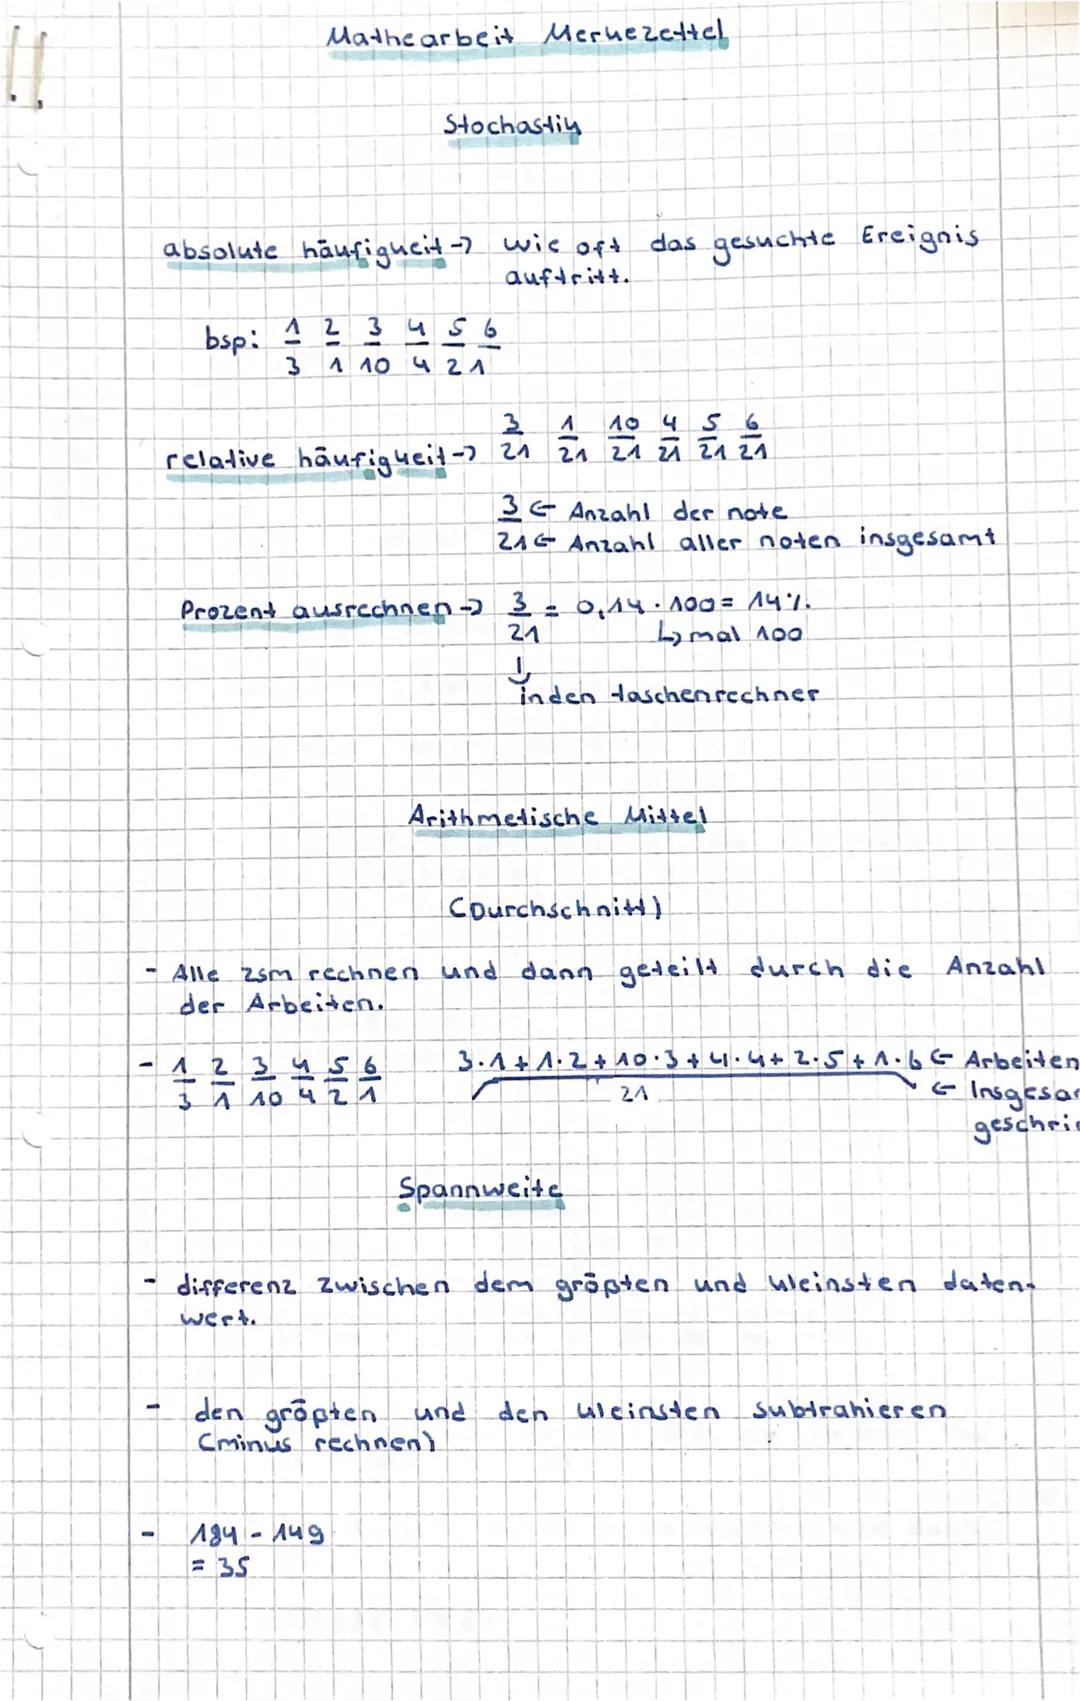 !!
Mathearbeit Merkezettel
Stochastik
absolute häufigkeit -> wie oft das gesuchte Ereignis
auftritt.
bsp: 1 2 3 4 5 6
3 1 10 4 2 1
3 1 10 4 5 6
relative häufigkeit -> 21 21 21 21 21 21
3 ← Anzahl der note
21 ← Anzahl aller noten insgesamt
Prozent ausrechnen -> 3/21 = 0,14 · 100 = 14%.
↳ mal 100
↓
in den taschenrechner
Arithmetische Mittel
(Durchschnitt)
- Alle zsm rechnen und dann geteilt durch die Anzahl
der Arbeiten.
- 1 2 3 4 5 6 3·1+1·2+10·3+4·4+2·5+1·6 ← Arbeiten
3 1 10 4 2 1 21 ← Insgesa
geschri
Spannweite
- differenz zwischen dem größten und kleinsten daten-
wert.
- den größten und den kleinsten subtrahieren
(minus rechnen)
- 184 - 149
= 35